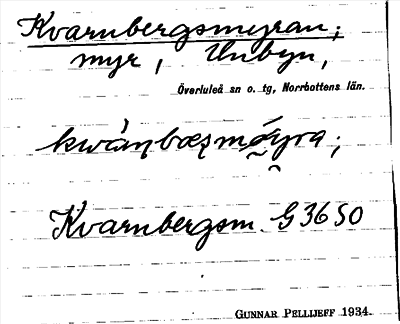 Kvarnbergsmyran;
myr, Unbyn,
Överluleå sn o. tg, Norrbottens län.
Kvarnbergsm. G3650
GUNNAR PELLIJEFF 1934.